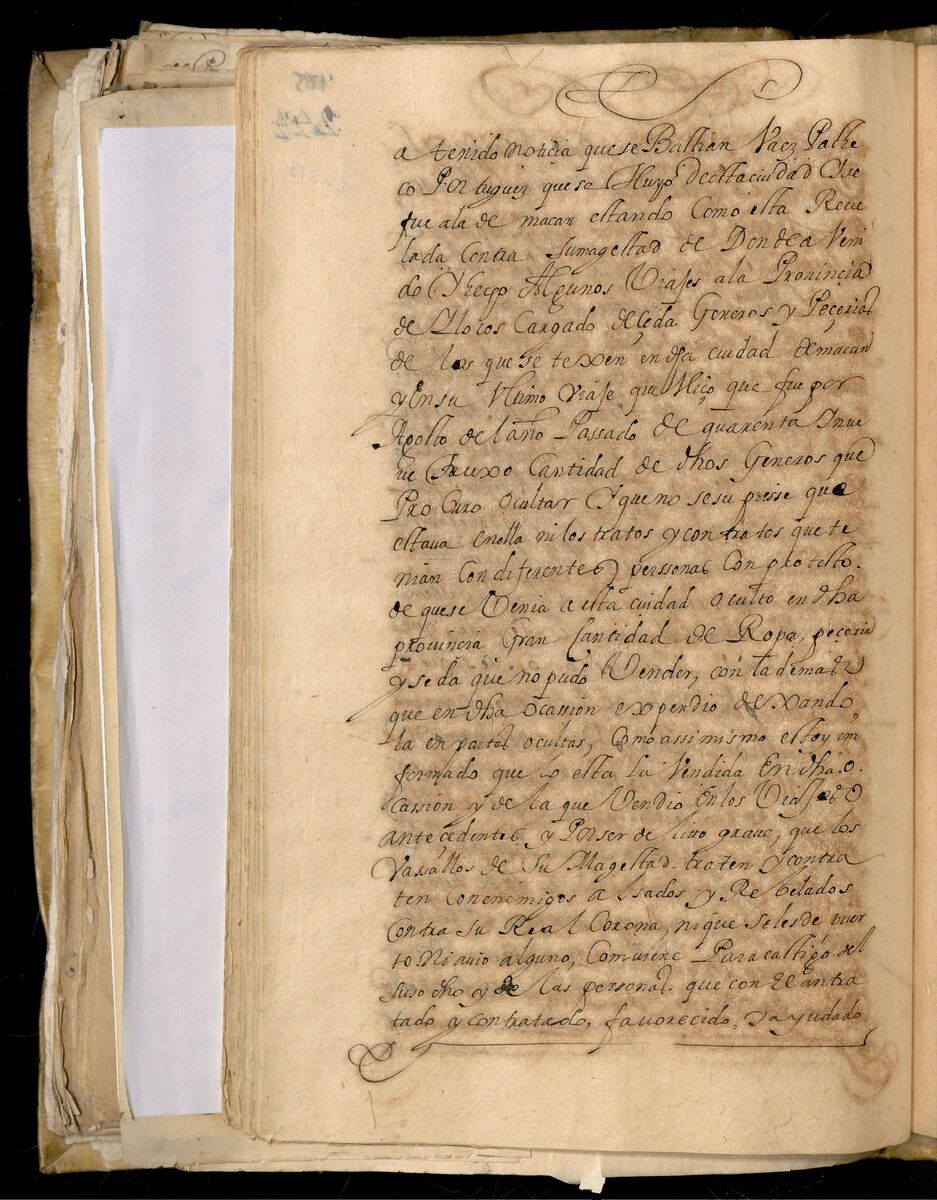 a tenido noticia que se Bastian Vaez Pache
co Portuguez que se Huyo de esta ciudad Yse
fue ala de macan estando Como esta Reue
lada Contra Sumagestad de Donde a Veni
do Y hecho Algunos Viajes ala Prouincia
de Yllocos Cargado de çeda Generos y Peçerias
de los que se texen en dha ciudad de macan
y En su Vltimo Viaje que Hiço que fue por
Agosto del año Passado de quarenta Y nue
ue Truxo Cantidad de dhos Generos que
Procuro ocultar Y que no se su piesse que
estaua enella ni los tratos y contratos que te
nian Con diferentes perssonas Con protesto.
de que se Venia a esta ciudad oculto en dha
prouincia Gran Cantidad de Ropa, peceria
y seda que no pudo Vender, con la demas
que en dha ocassion expendio dexando,
la en partes ocultas, Como assi mismo estoy in
formado que lo esta la Vendida En dha o.
cassion y de la que Vendio En los Viajes
antecedentes y Por ser delito graue, que los
Vassallos de Su Magestad. traten y contra
ten con enemigos alsados y Rebelados
Contra su Real Corona, ni que se les de puer
to Ni auio alguno, Comviene Para castigo del
suso dho y de las personas. que con el an tra
tado y contratado, favorecido, Yayudado